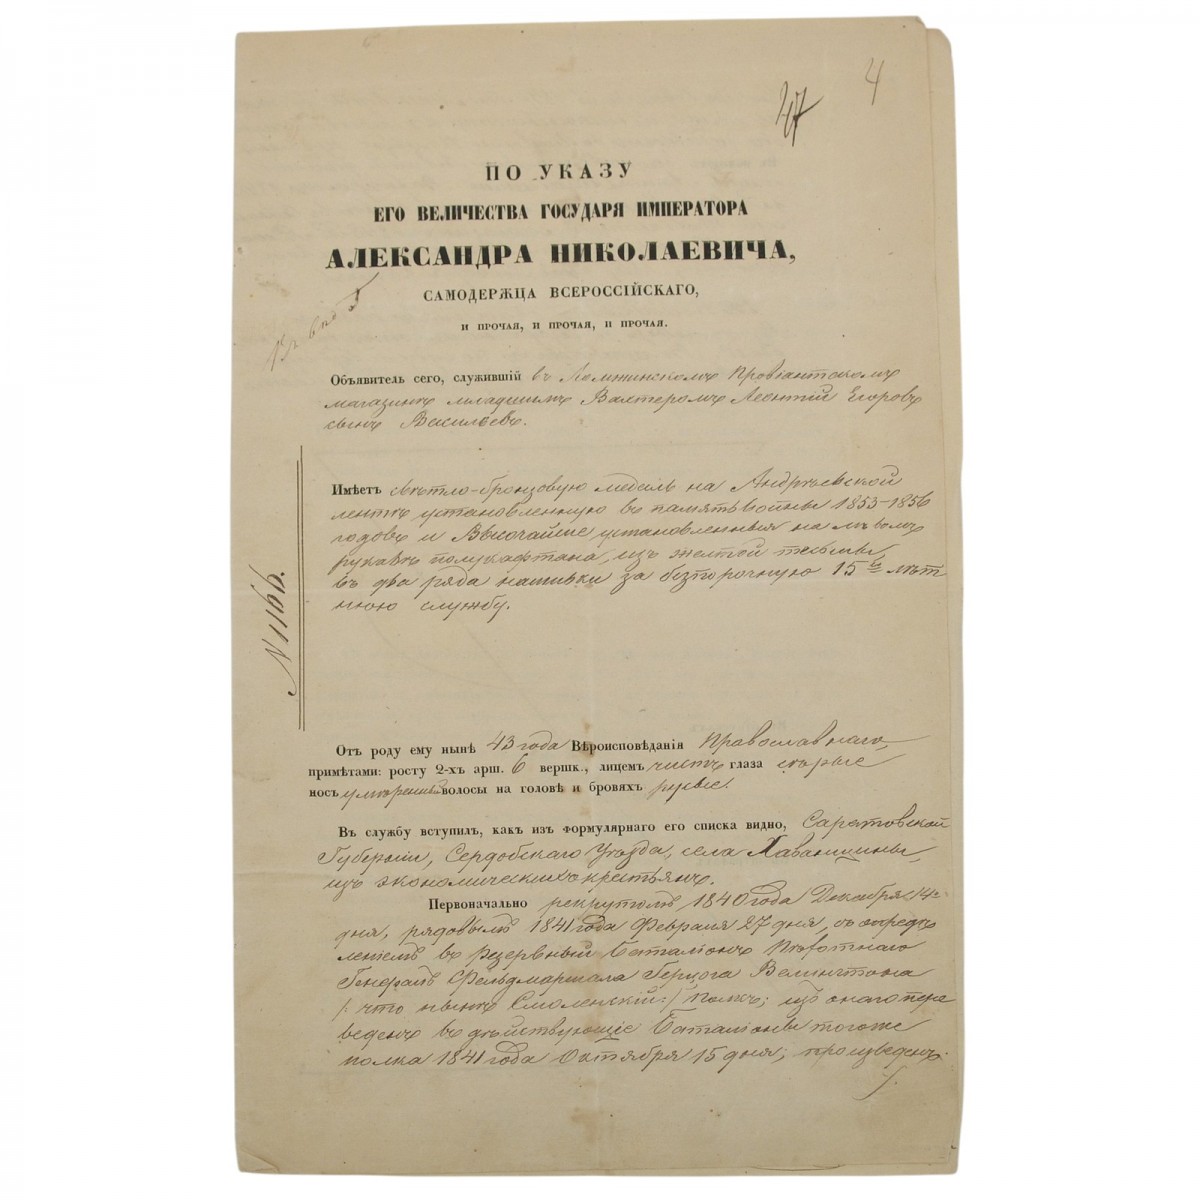 47 4
ПО УКАЗУ
ЕГО ВЕЛИЧЕСТВА ГОСУДАРЯ ИМПЕРАТОРА
АЛЕКСАНДРА НИКОЛАЕВИЧА,
САМОДЕРЖЦА ВСЕРОССІЙСКАГО,
И ПРОЧАЯ, И ПРОЧАЯ, И ПРОЧАЯ.
Объявитель сего, служившій въ Ломжинскомъ Провіантскомъ
магазинѣ младшимъ Вахтеромъ Леонтій Егоровъ
сынъ Васильевъ.
Имѣетъ свѣтло-бронзовую медаль на Андреевской
лентѣ установленную въ память войны 1853-1856
годовъ и Высочайше установленныя на лѣвомъ
рукавѣ полукафтана, изъ желтой тесьмы,
въ два ряда нашивки за безпорочную 15ти лѣт
нюю службу.
№ 1166.
Отъ роду ему нынѣ 43 года Вѣроисповѣданія Православнаго,
примѣтами: росту 2-хъ арш. 6 вершк., лицемъ чистъ глаза сѣрые
носъ умѣренный волосы на головѣ и бровяхъ русые.
Въ службу вступилъ, какъ изъ формулярнаго его списка видно, Саратовской
Губерніи, Сердобскаго Уѣзда, села
изъ экономическихъ крестьянъ.
Первоначально рекрутомъ 1840 года Декабря 14го
дня, рядовымъ 1841 года Февраля 27 дня, съ опредѣ
леніемъ въ резервный баталіонъ Пѣхотнаго
Генералъ Фельдмаршала Герцога Велингтона
/: что нынѣ Смоленскій :/ Полкъ; изъ онаго пере
веденъ въ дѣйствующіе баталіоны тогоже
полка 1841 года Октября 15 дня; произведенъ